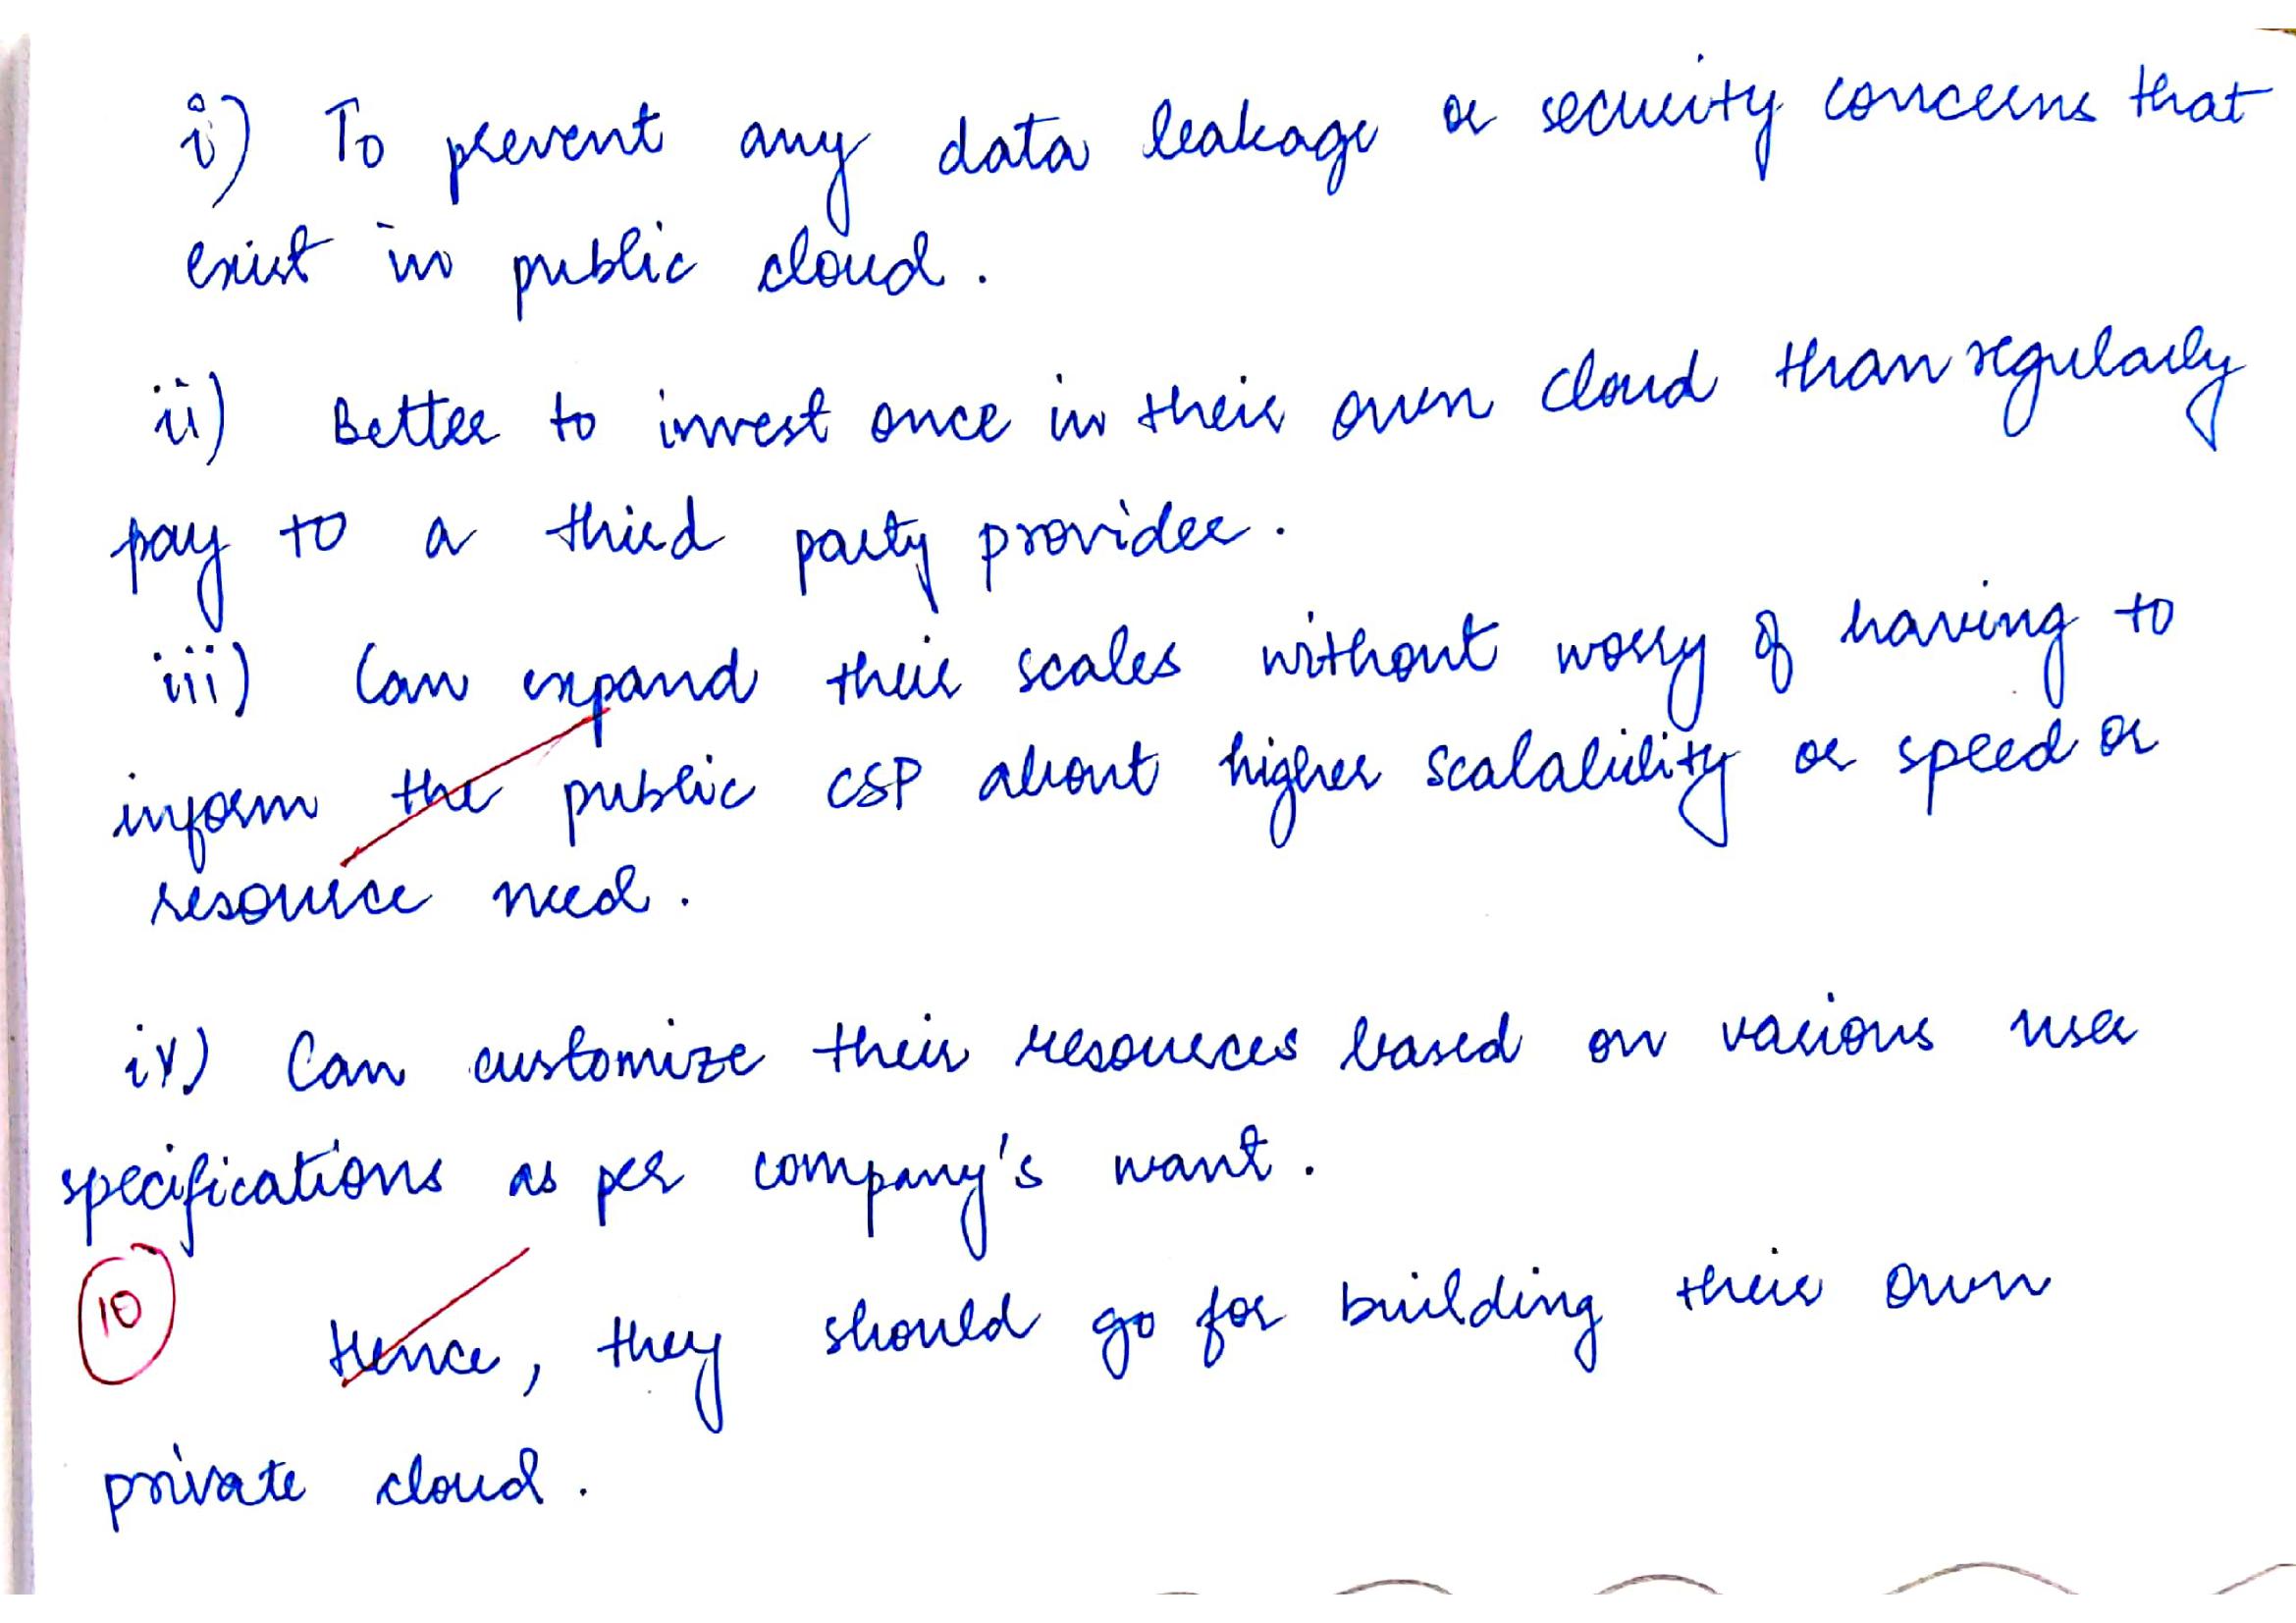 i) To prevent any data leakage or security concerns that
exist in public cloud.
ii) Better to invest once in their own cloud than regularly
pay to a third party provider.
iii) Can expand their scales without worry of having to
inform the public CSP about higher scalability or speed or
resource need.
iv) Can customize their resources based on various user
specifications as per company's want.
10
Hence, they should go for building their own
private cloud.